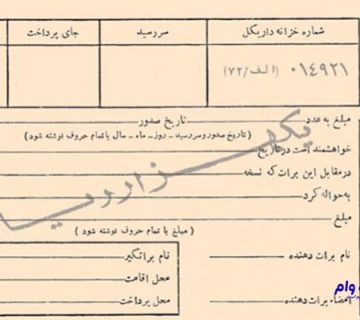 شماره خزانه داریکل
سررسید
جای پرداخت
۰۱۴۹۲۱ (الف/۷۲)
مبلغ به عدد
تاریخ صدور
(تاریخ صدور و سررسید - روز - ماه - سال با تمام حروف نوشته شود)
خواهشمند است در تاریخ
در مقابل این برات که نسخه
به حواله کرد
مبلغ
(مبلغ با تمام حروف نوشته شود)
یکهزار ریال
نام برات دهنده
نام براتگیر
محل اقامت
امضاء برات دهنده
محل پرداخت
وام